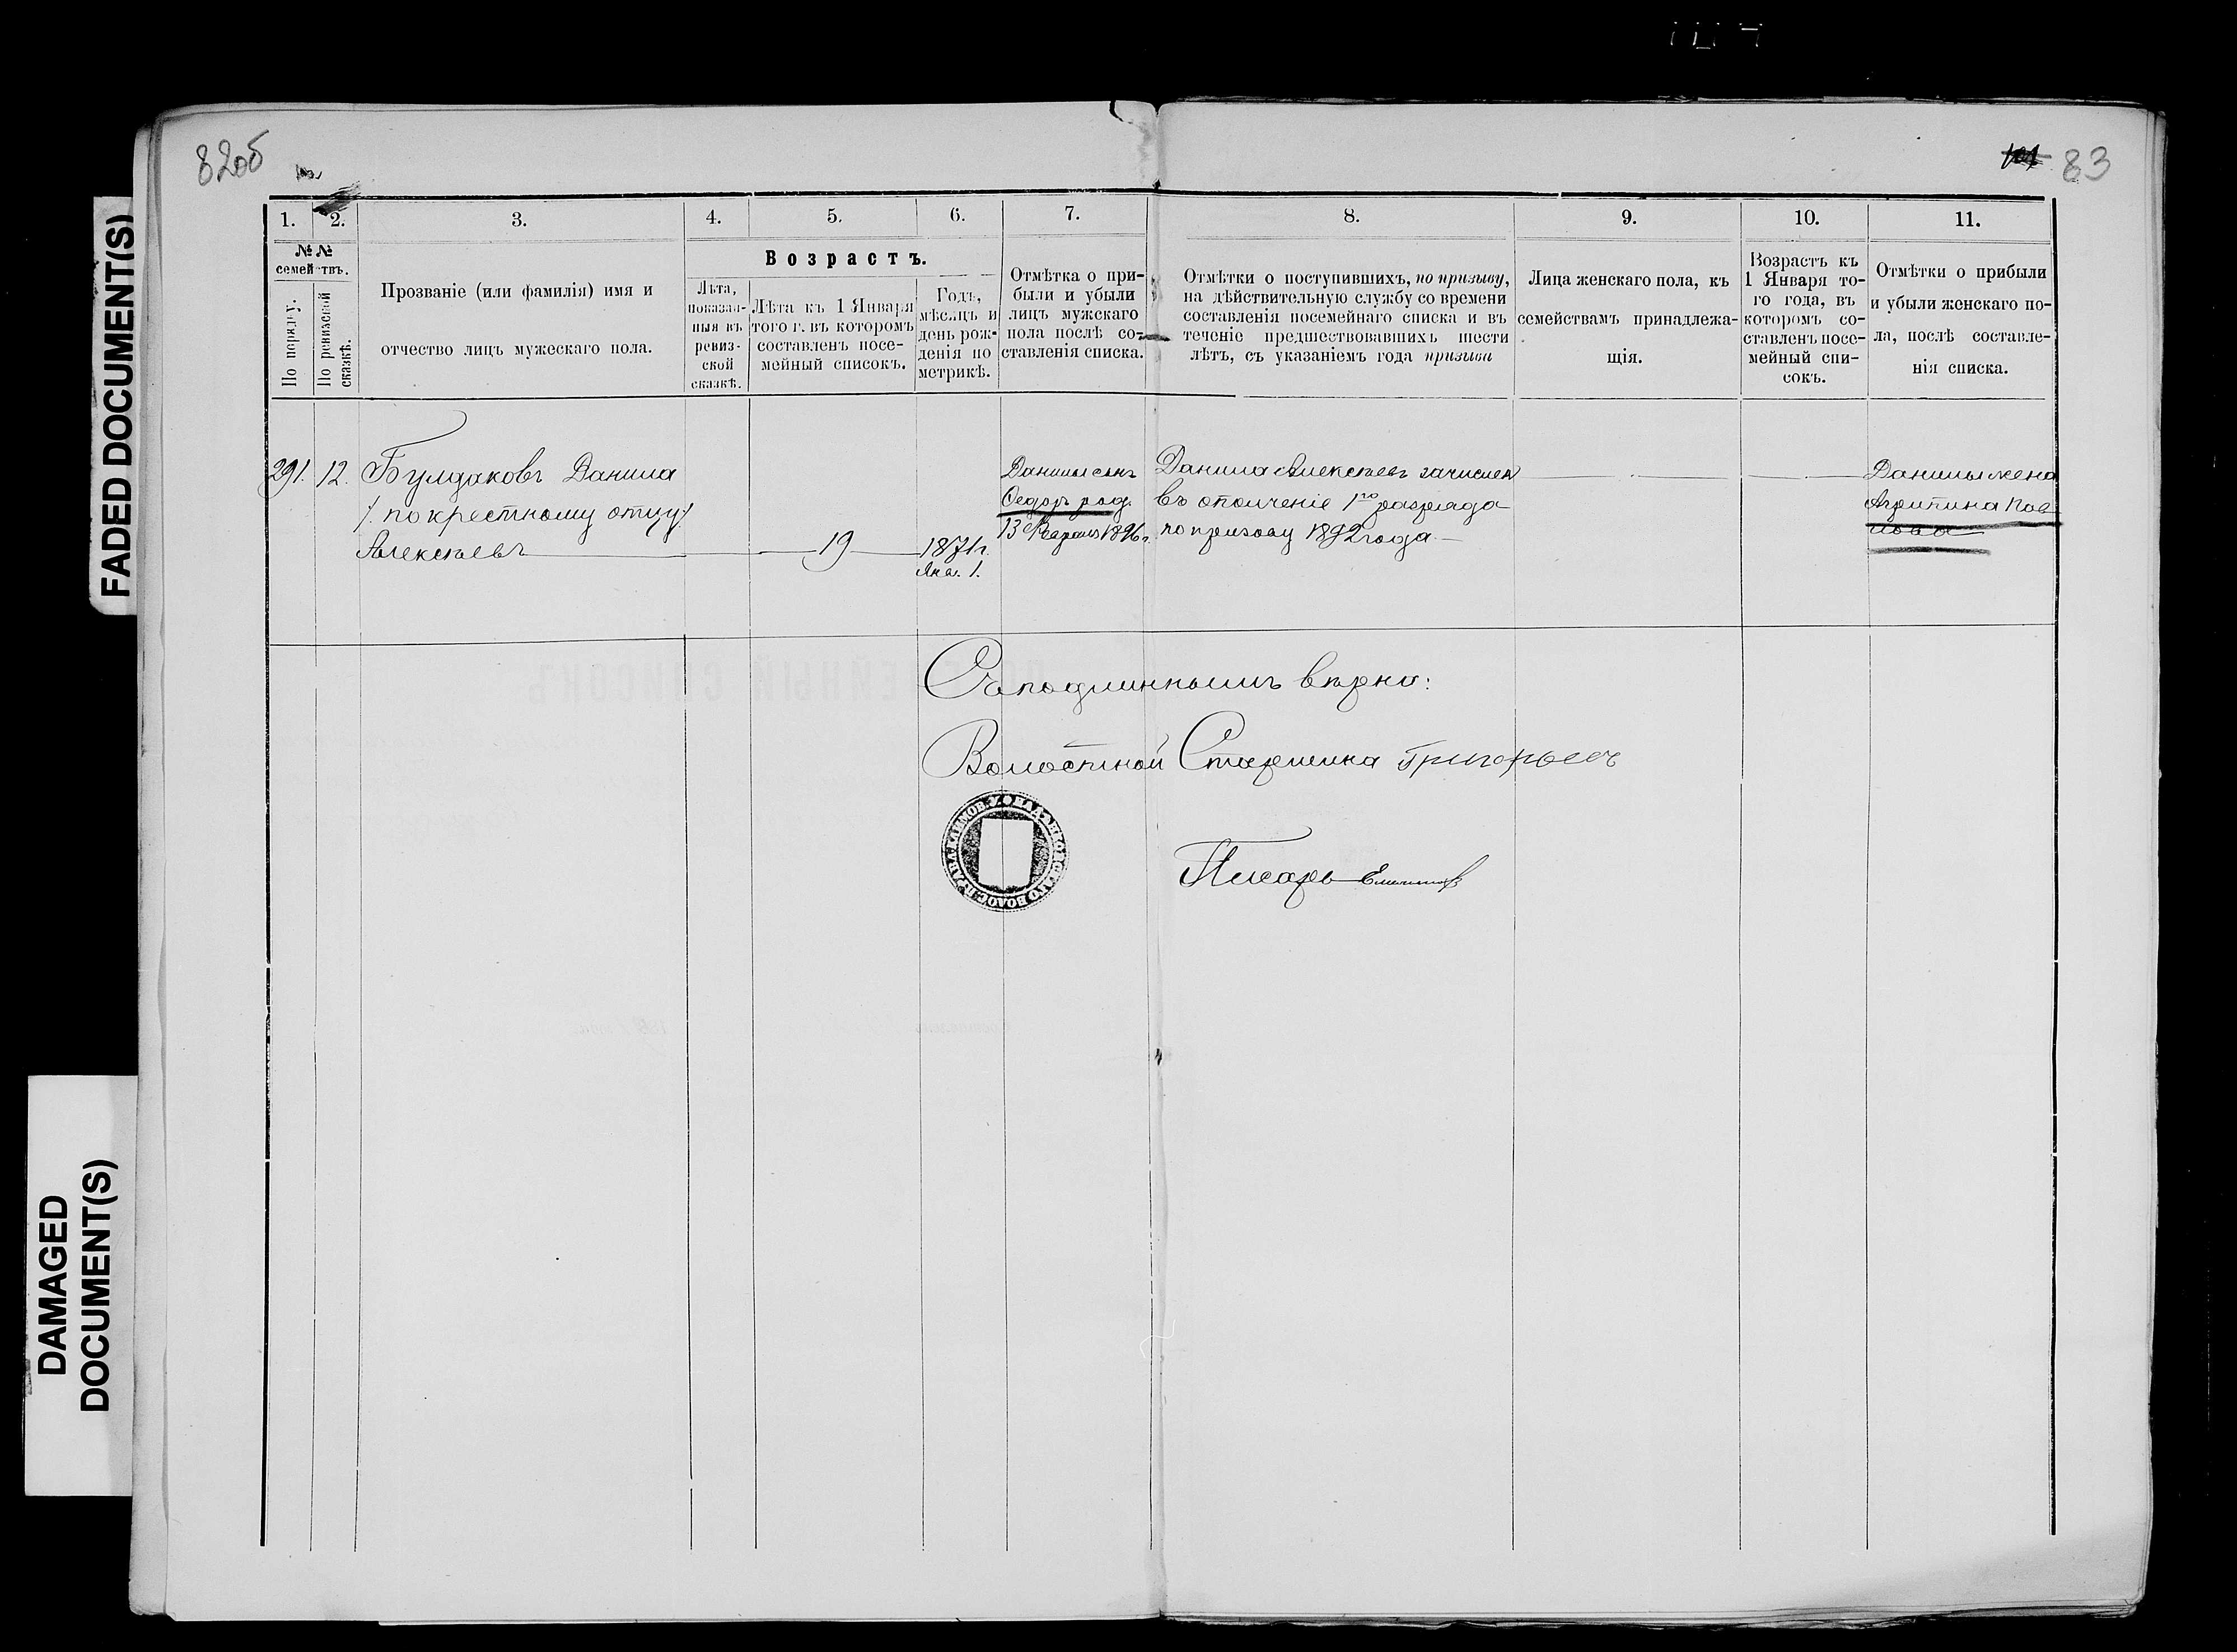 FADED DOCUMENT(S)
DAMAGED
DOCUMENT(S)
82об
83
1.
2.
3.
4.
5.
6.
7.
8.
9.
10.
11.
№ №
семействъ.
По порядку.
По ревизской
сказкѣ.
Прозваніе (или фамилія) имя и
отчество лицъ мужескаго пола.
Возрастъ.
Лѣта,
показан-
ныя въ
ревиз-
ской
сказкѣ.
Лѣта къ 1 Января
того г. въ которомъ
составленъ посе-
мейный списокъ.
Годъ,
мѣсяцъ и
день рож-
денія по
метрикѣ.
Отмѣтка о при-
были и убыли
лицъ мужскаго
пола послѣ со-
ставленія списка.
Отмѣтки о поступившихъ, по призыву,
на дѣйствительную службу со времени
составленія посемейнаго списка и въ
теченіе предшествовавшихъ шести
лѣтъ, съ указаніемъ года призыва
Лица женскаго пола, къ
семействамъ принадлежа-
щія.
Возрастъ къ
1 Января то-
го года, въ
которомъ со-
ставленъ посе-
мейный спи-
сокъ.
Отмѣтки о прибыли
и убыли женскаго по-
ла, послѣ составле-
нія списка.
291. 12. Булдаковъ Данила
/. по крестному отцу/
Алексѣевъ
19
1871г.
Янв. 1.
Данилы сынъ
Ѳедоръ род.
13 Февраля 1896г.
Данила Алексѣевъ зачислен
въ ополченіе 1го разряда
по призыву 1892 года
Данилы жена
Агрипина Пав
лова
Съ подлиннымъ вѣрно:
Волостной Старшина Григорьевъ
Писарь